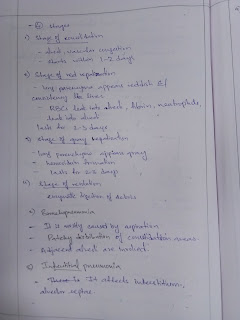 Stages
1) Stage of consolidation
- alveoli, vascular congestion
- Starts within 1-2 days
2) Stage of red hepatization
- lung parenchyma appears reddish &
consistency like liver.
- RBCs leak into alveoli, fibrin, neutrophils
leak into alveoli
lasts for 1-3 days
3) Stage of grey hepatization
- lung parenchyma appears gray
- hemosiderin
- lasts for days
4) Stage of resolution
- enzymatic digestion of debris
2) Bronchopneumonia
- It is mostly caused by aspiration
- Patchy distribution of consolidation
- Adjacent alveoli are involved.
3) Interstitial pneumonia
- It affects interstitium,
alveolar septae.